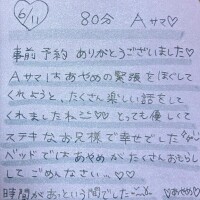 6/11 80分 Aサマ♡
事前予約ありがとうございました♡
Aサマはあやめの緊張をほぐして
くれようと、たくさん楽しい話をして
くれましたね とっても優しくて
ステキなお兄様で幸せでした
ベッドではあやめがたくさんおもらし
してごめんなさい…♡♡
時間があっという間でした
♡あやめ♡